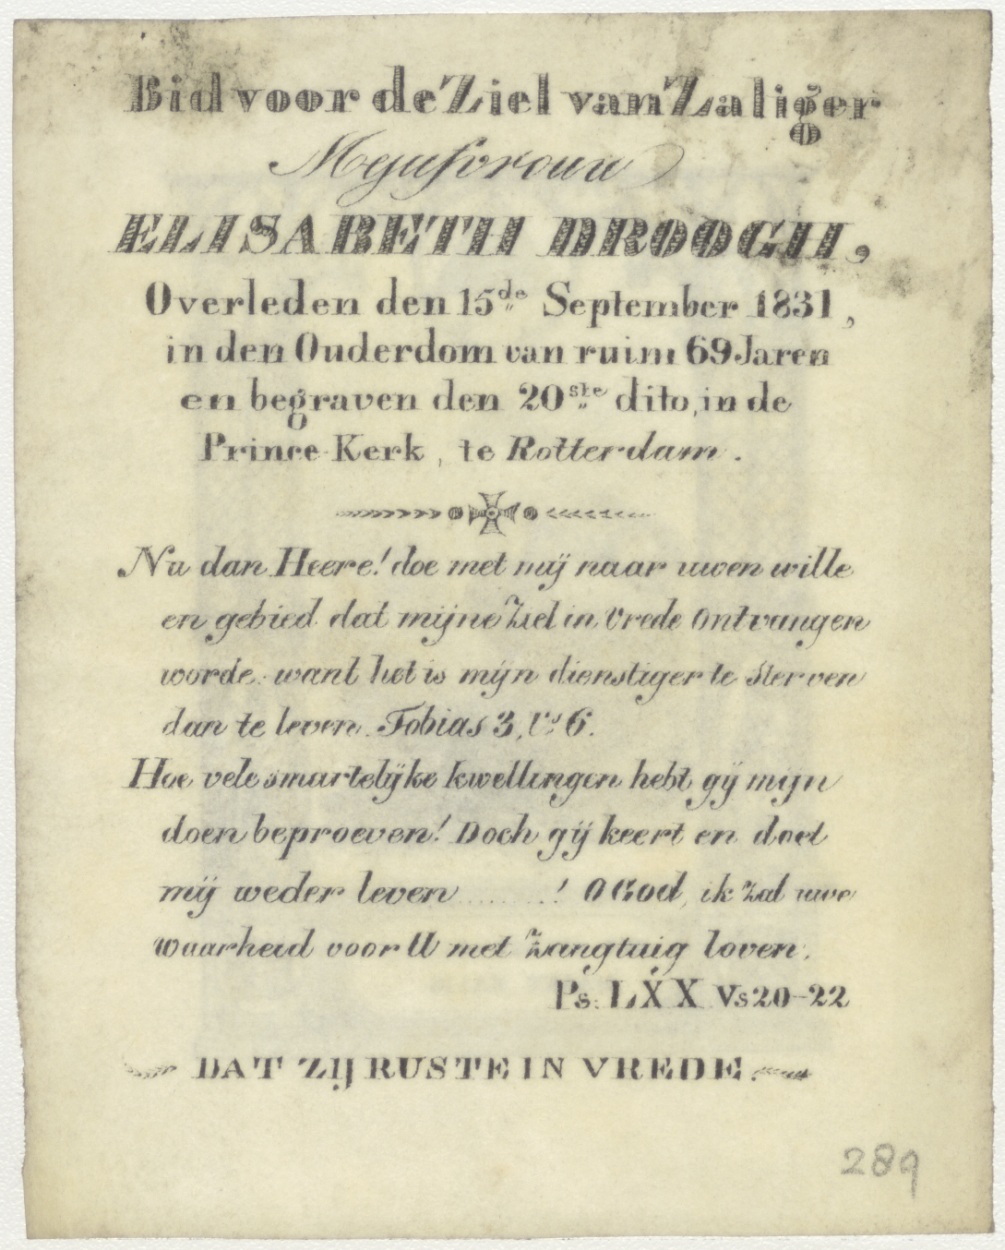 Bid voor de Ziel van Zaliger
Mejufvrouw
ELISABETH DROOGH,
Overleden den 15de September 1831,
in den Ouderdom van ruim 69 Jaren
en begraven den 20ste dito, in de
Prince Kerk, te Rotterdam.
Nu dan Heere! doe met mij naar uwen wille
en gebied dat mijne Ziel in Vrede ontvangen
worde. want het is mijn dienstiger te Sterven
dan te leven. Tobias 3, Vs 6.
Hoe vele smartelijke kwellingen hebt gij mijn
doen beproeven! Doch gij keert en doet
mij weder leven ........! O God, ik zal uwe
waarheid voor U met Zangtuig loven.
Ps. LXX Vs 20-22
DAT ZIJ RUSTE IN VREDE.
289